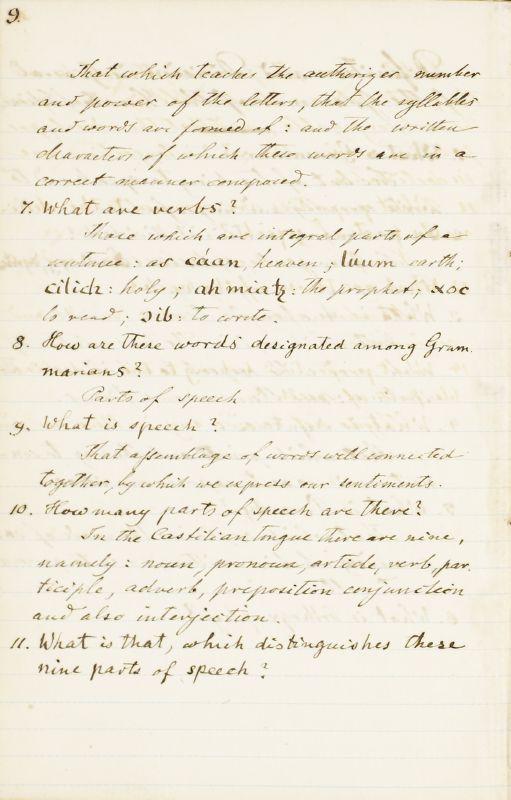 9.
That which teaches the authorizer number
and power of the letters, that the syllables
and words are formed of : and the written
characters of which these words are in a
correct manner composed.
7. What are verbs?
Those which are integral parts of a
sentence : as cáan, heaven ; lúum earth;
cilich: holy ; ahmiatz : the prophet ; xoc
to read ; ɔib : to write.
8. How are these words designated among Gram
marians?
Parts of speech
9. What is speech?
That assemblage of words well connected
together, by which we express our sentiments.
10. How many parts of speech are there?
In the Castilian tongue there are nine,
namely : noun, pronoun, article, verb, par.
ticiple, adverb, preposition conjunction
and also interjection.
11. What is that, which distinguishes these
nine parts of speech?